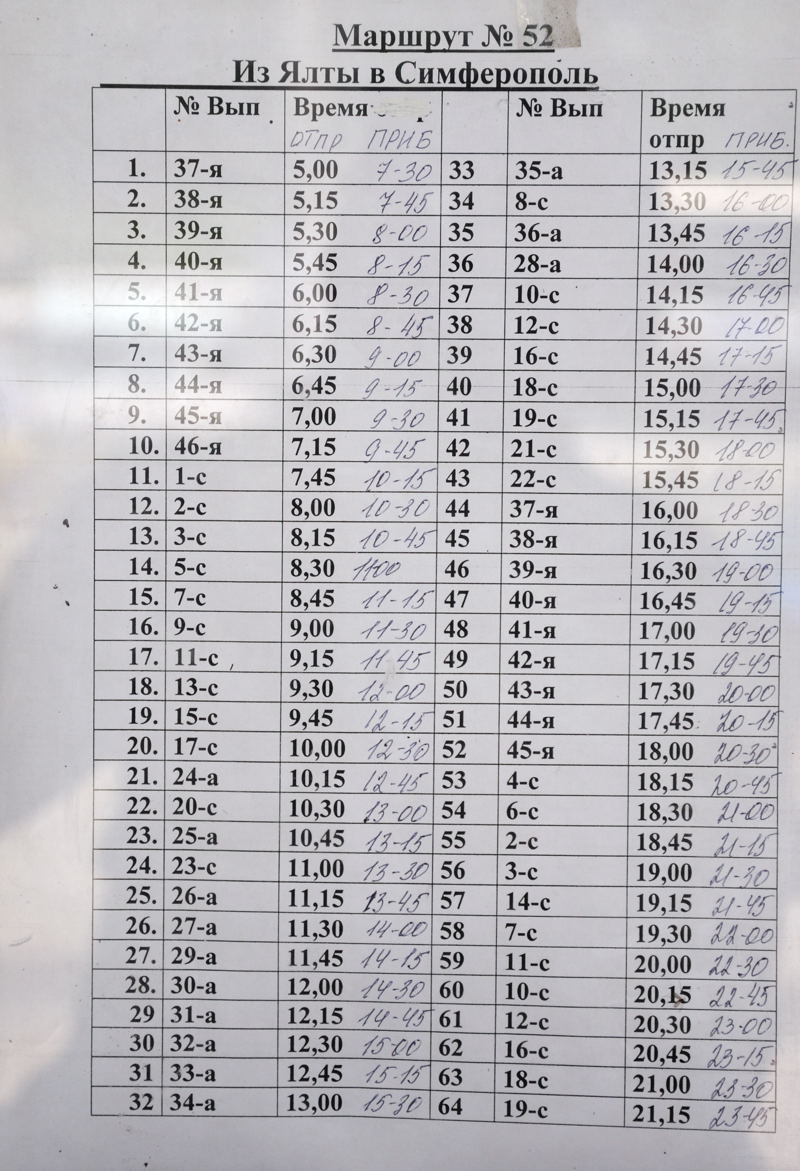 Маршрут № 52
Из Ялты в Симферополь
№ Вып Время № Вып Время
отпр приб отпр приб.
1. 37-я 5,00 7-30 33 35-а 13,15 15-45
2. 38-я 5,15 7-45 34 8-с 13,30 16-00
3. 39-я 5,30 8-00 35 36-а 13,45 16-15
4. 40-я 5,45 8-15 36 28-а 14,00 16-30
5. 41-я 6,00 8-30 37 10-с 14,15 16-45
6. 42-я 6,15 8-45 38 12-с 14,30 17-00
7. 43-я 6,30 9-00 39 16-с 14,45 17-15
8. 44-я 6,45 9-15 40 18-с 15,00 17-30
9. 45-я 7,00 9-30 41 19-с 15,15 17-45
10. 46-я 7,15 9-45 42 21-с 15,30 18-00
11. 1-с 7,45 10-15 43 22-с 15,45 18-15
12. 2-с 8,00 10-30 44 37-я 16,00 18-30
13. 3-с 8,15 10-45 45 38-я 16,15 18-45
14. 5-с 8,30 11-00 46 39-я 16,30 19-00
15. 7-с 8,45 11-15 47 40-я 16,45 19-15
16. 9-с 9,00 11-30 48 41-я 17,00 19-30
17. 11-с 9,15 11-45 49 42-я 17,15 19-45
18. 13-с 9,30 12-00 50 43-я 17,30 20-00
19. 15-с 9,45 12-15 51 44-я 17,45 20-15
20. 17-с 10,00 12-30 52 45-я 18,00 20-30
21. 24-а 10,15 12-45 53 4-с 18,15 20-45
22. 20-с 10,30 13-00 54 6-с 18,30 21-00
23. 25-а 10,45 13-15 55 2-с 18,45 21-15
24. 23-с 11,00 13-30 56 3-с 19,00 21-30
25. 26-а 11,15 13-45 57 14-с 19,15 21-45
26. 27-а 11,30 14-00 58 7-с 19,30 22-00
27. 29-а 11,45 14-15 59 11-с 20,00 22-30
28. 30-а 12,00 14-30 60 10-с 20,15 22-45
29 31-а 12,15 14-45 61 12-с 20,30 23-00
30 32-а 12,30 15-00 62 16-с 20,45 23-15
31 33-а 12,45 15-15 63 18-с 21,00 23-30
32 34-а 13,00 15-30 64 19-с 21,15 23-45